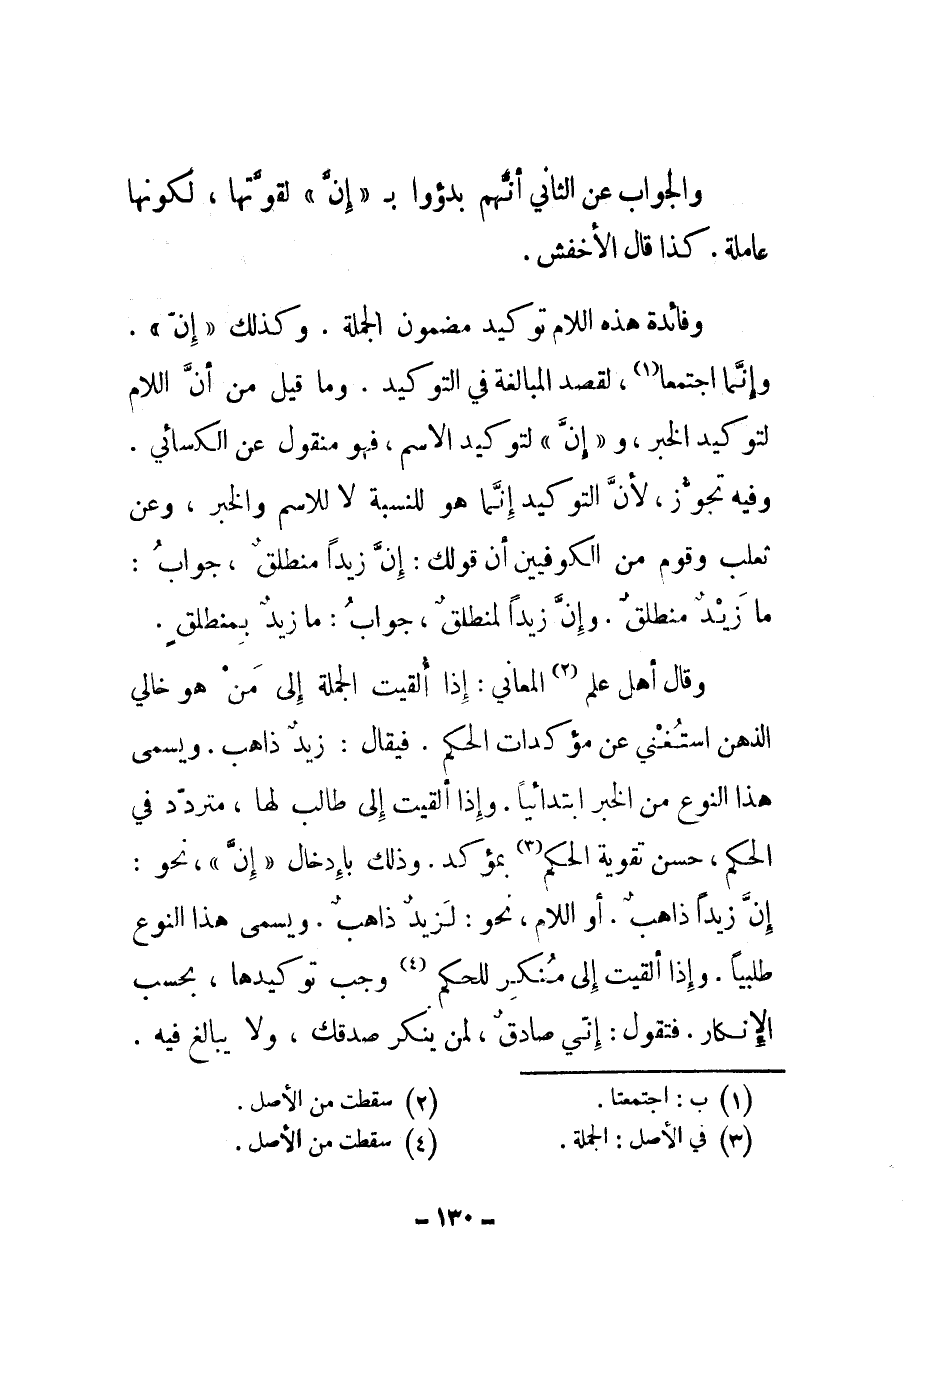 والجواب عن الثاني أنَّهم بدؤوا بـ « إنَّ » لقوَّتها ، لكونها
عاملة . كذا قال الأخفش .
وفائدة هذه اللام توكيد مضمون الجملة . وكذلك « إنّ » .
وإنَّما اجتمعا(١) ، لقصد المبالغة في التوكيد . وما قيل من أنَّ اللام
لتوكيد الخبر ، و « إنَّ » لتوكيد الاسم ، فهو منقول عن الكسائي .
وفيه تجوُّز ، لأنَّ التوكيد إنَّما هو للنسبة لا للاسم والخبر ، وعن
ثعلب وقوم من الكوفيين أن قولك : إنَّ زيداً منطلقٌ ، جوابُ :
ما زَيْدٌ منطلقٌ . وإنَّ زيداً لمنطلقٌ ، جوابُ : ما زيدٌ بِمنطلقٍ .
وقال أهل علم (٢) المعاني : إذا أُلقيت الجملة إلى مَنْ هو خالي
الذهن استُغْني عن مؤكدات الحكم . فيقال : زيدٌ ذاهب . ويسمى
هذا النوع من الخبر ابتدائياً . وإذا ألقيت إلى طالب لها ، متردّد في
الحكم ، حسن تقوية الحكم(٣) بمؤكد . وذلك بإدخال « إنَّ » ، نحو :
إنَّ زيداً ذاهبٌ . أو اللام ، نحو : لَزيدٌ ذاهبٌ . ويسمى هذا النوع
طلبياً . وإذا ألقيت إلى مُنْكِرٍ للحكم (٤) وجب توكيدها ، بحسب
الإنكار . فتقول : إنّي صادقٌ ، لمن ينكر صدقك ، ولا يبالغ فيه .
(١) ب : اجتمعتا . (٢) سقطت من الأصل .
(٣) في الأصل : الجملة . (٤) سقطت من الأصل .
- ١٣٠ -